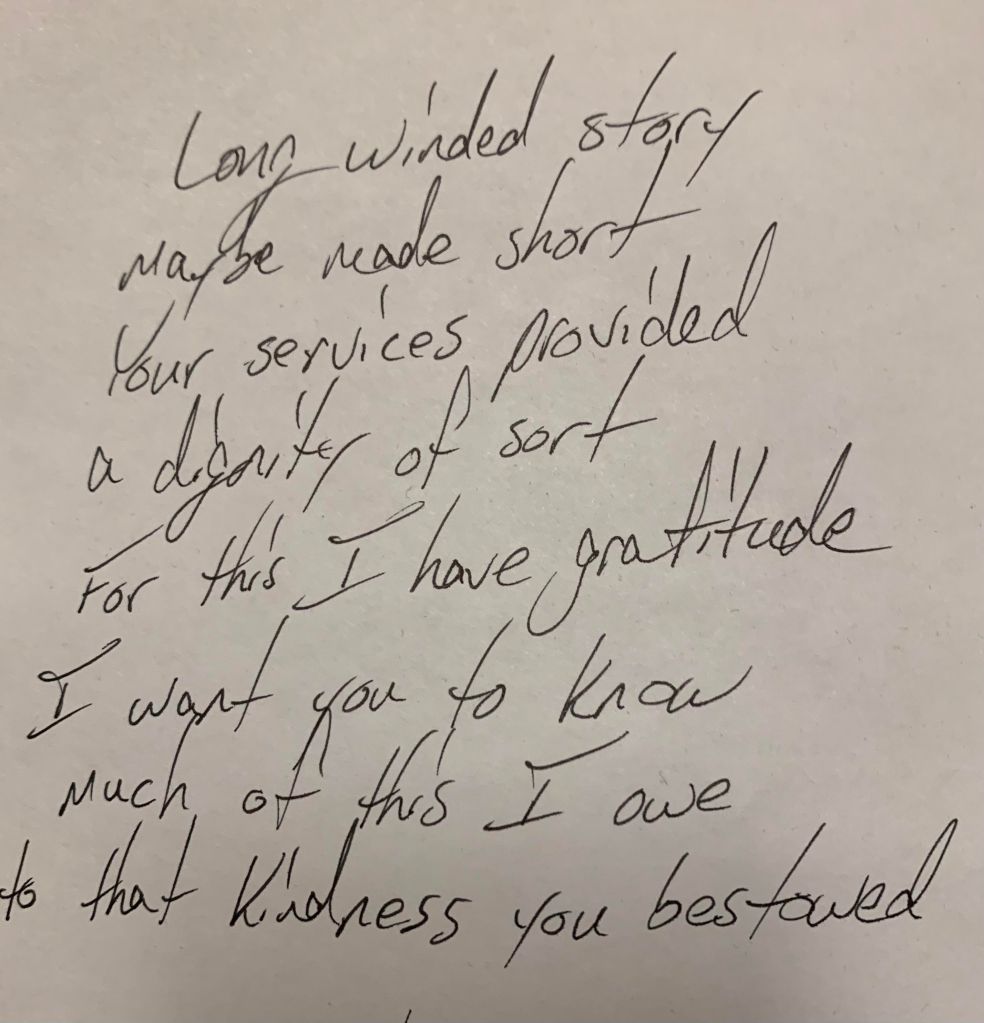 Long winded story
Maybe made short
Your services provided
a dignity of sort
For this I have gratitude
I want you to know
Much of this I owe
to that kindness you bestowed